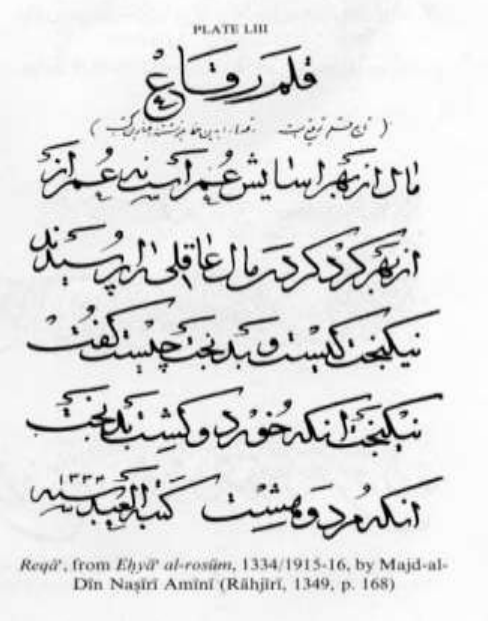 PLATE LIII
قلم رقاع
مال از بهر اسایش عمر است نه عمر از
از بهر گرد کردن مال عاقلی را پرسیدند
نیکبخت کیست و بدبخت چیست گفت
نیکبخت انکه خورد و کشت بدبخت
انکه مرد و هشت کتبه العبد سنه ۱۳۳۴
Reqāʿ, from Eḥyāʾ al-rosūm, 1334/1915-16, by Majd-al-
Dīn Naṣīrī Amīnī (Rāhjīrī, 1349, p. 168)